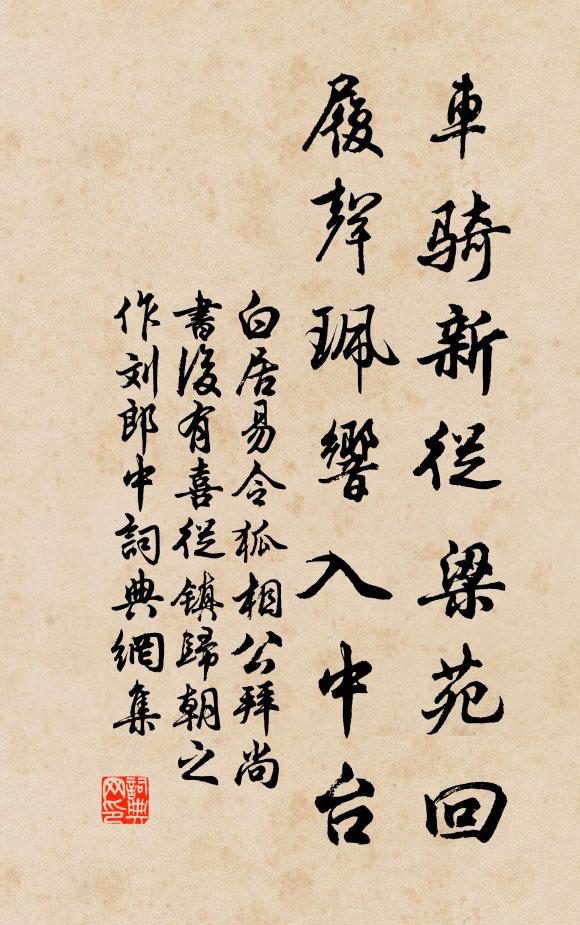 車騎新從梁苑回
履聲珮響入中台
白居易令狐相公拜尚
書後有喜從镇歸朝之
作刘郎中詞典網集
詞典網印